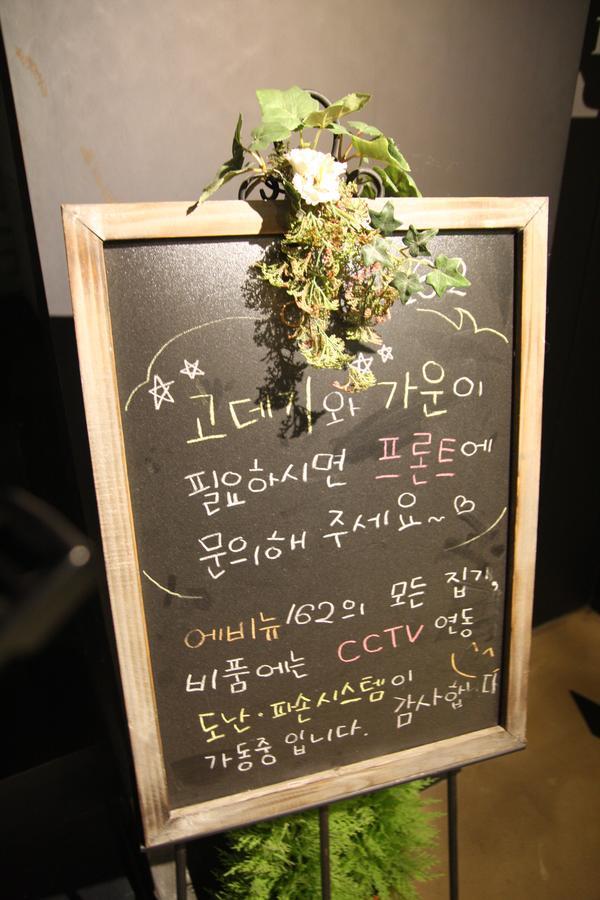 고데기와 가운이
필요하시면 프론트에
문의해 주세요~
에비뉴162의 모든 집기,
비품에는 CCTV 연동
도난·파손시스템이
가동중입니다. 감사합니다